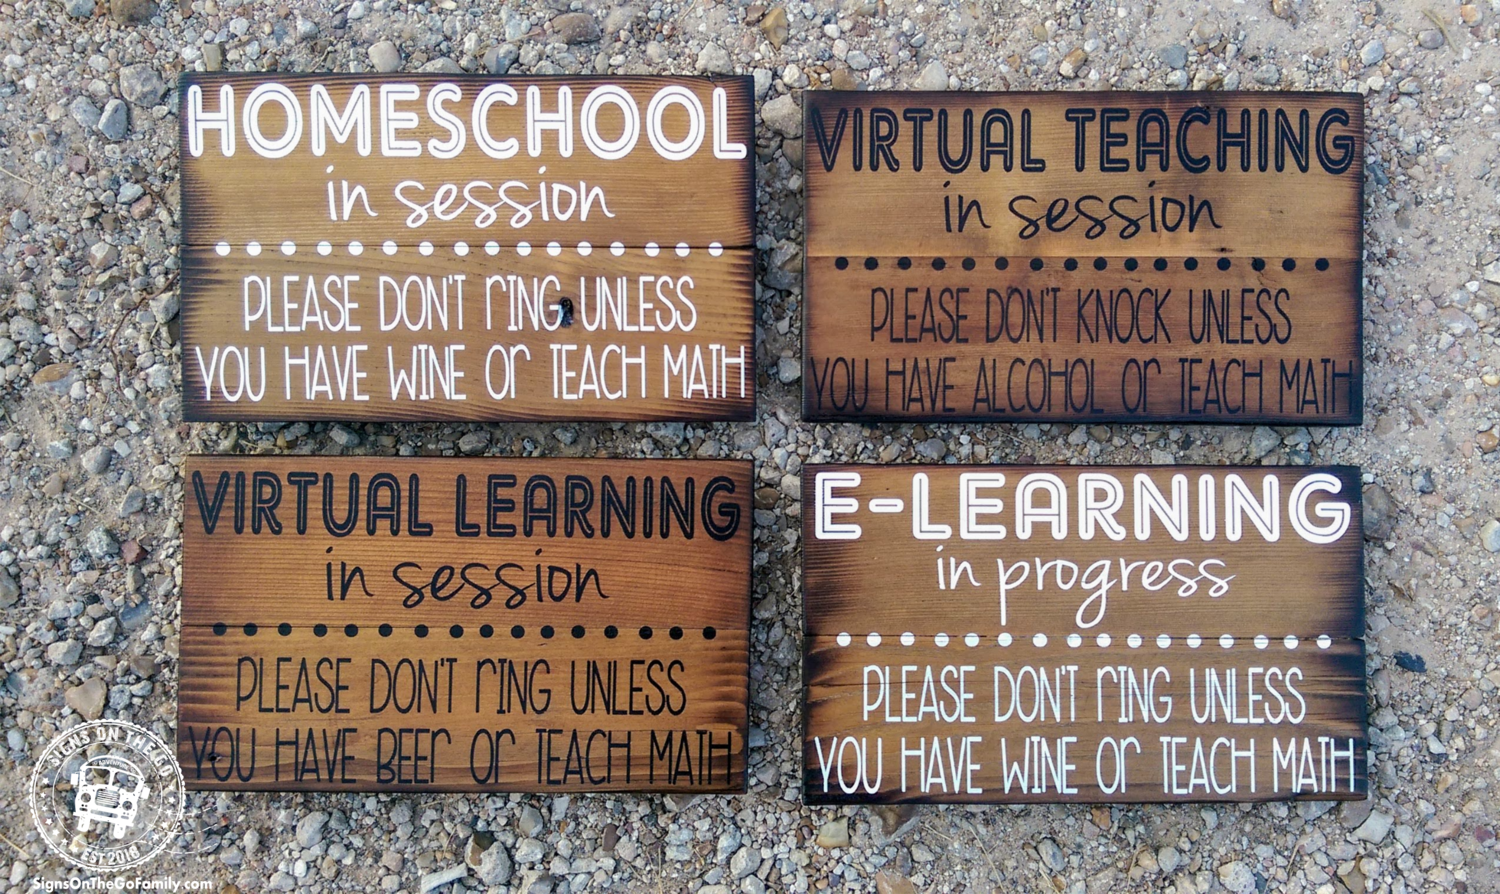 HOMESCHOOL
in session
PLEASE DON'T rING UNLESS
YOU HAVE WINE Or TEACH MATH
VIRTUAL TEACHING
in session
PLEASE DON'T KNOCK UNLESS
YOU HAVE ALCOHOL Or TEACH MATH
VIRTUAL LEARNING
in session
PLEASE DON'T rING UNLESS
YOU HAVE BEEr Or TEACH MATH
E-LEARNING
in progress
PLEASE DON'T rING UNLESS
YOU HAVE WINE Or TEACH MATH
SIGNS ON THE GO
EST 2018
SignsOnTheGoFamily.com